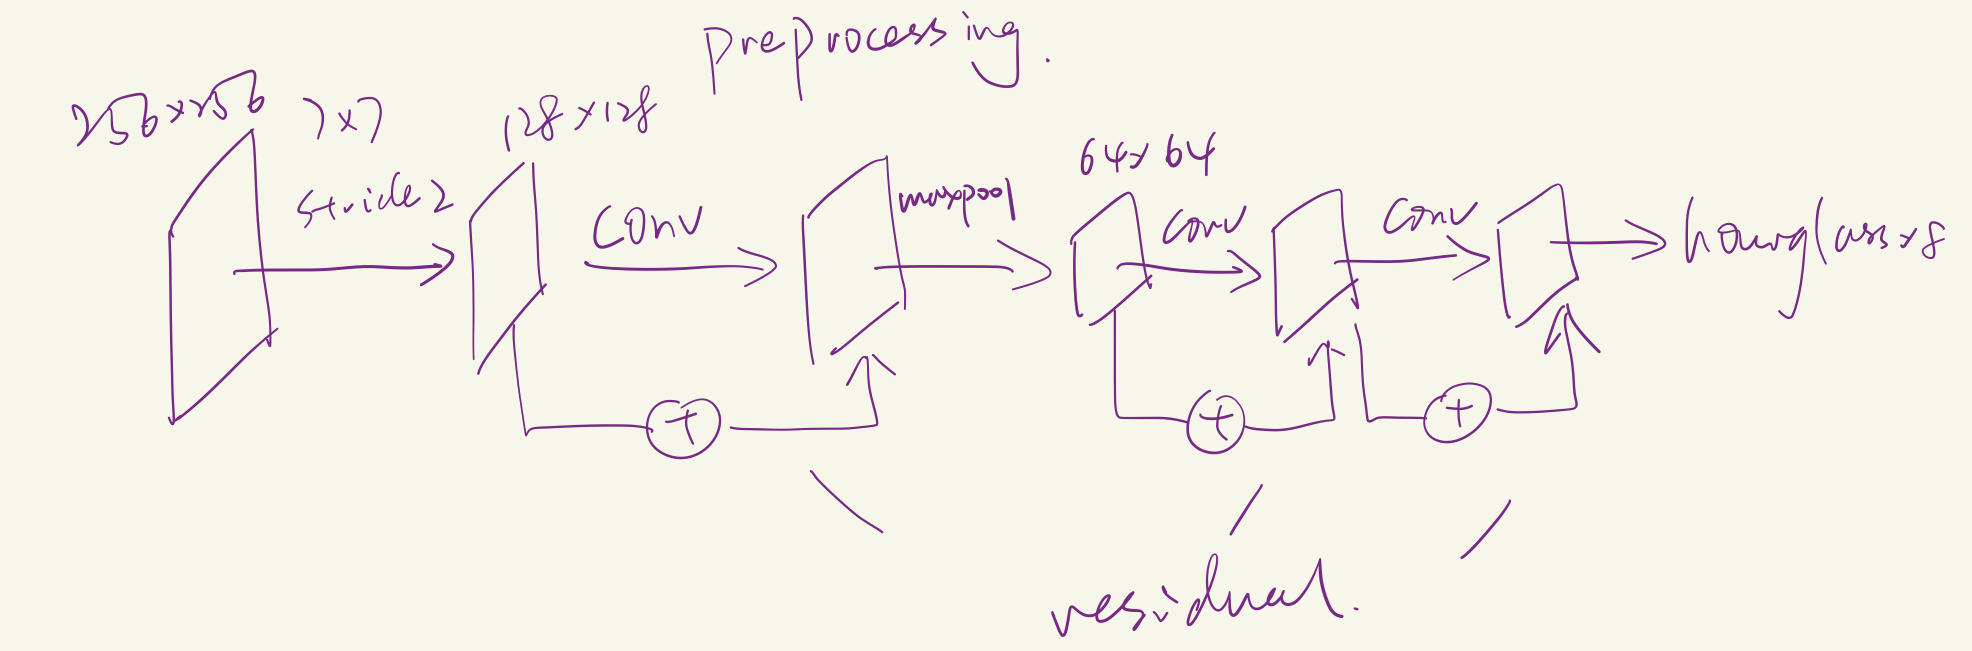 Preprocessing.
256×256
7×7
stride 2
128×128
conv
maxpool
64×64
conv
conv
hourglass×8
+
+
+
residual.